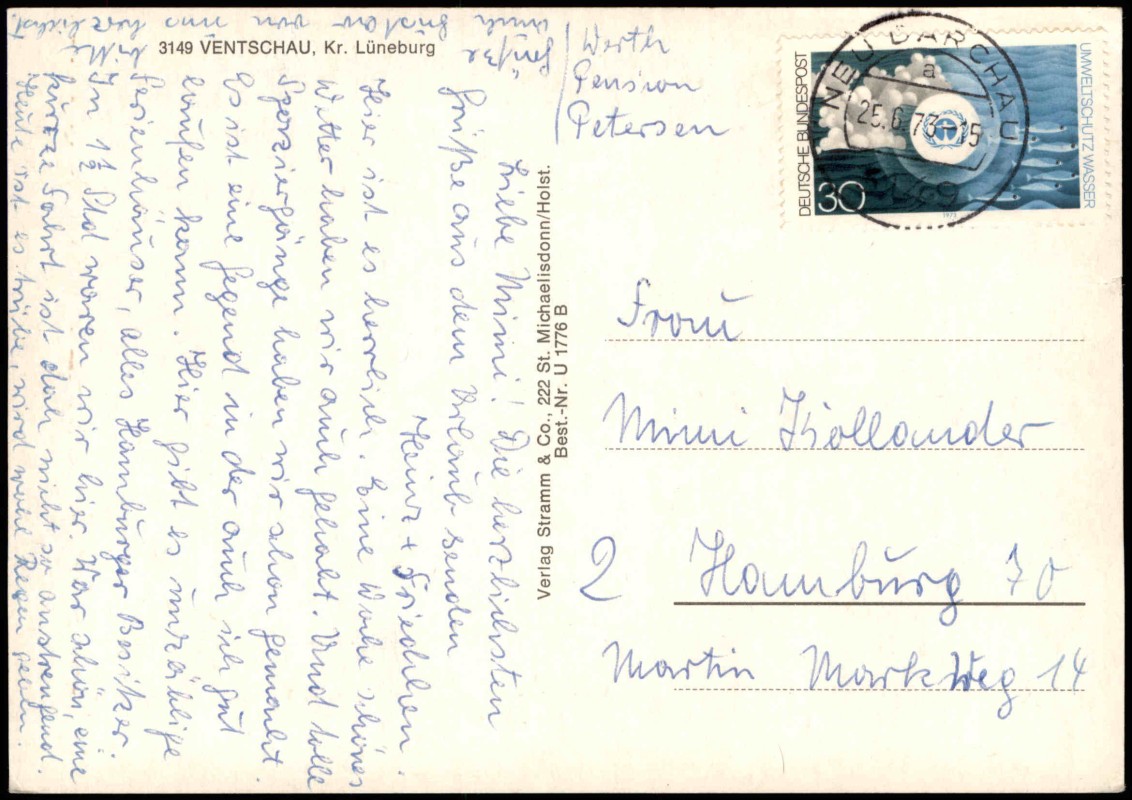 3149 VENTSCHAU, Kr. Lüneburg
Werth
Pension
Petersen
DEUTSCHE BUNDESPOST
30
UMWELTSCHUTZ WASSER
1973
NEU DARCHAU
a
25.6.73-15
Liebe Mimi! Die herzlichsten
Grüße aus dem Urlaub senden
Heinz + Friedchen.
Hier ist es herrlich. Eine Woche schönes
Wetter haben wir auch gehabt. Und tolle
Spaziergänge haben wir schon gemacht.
Es ist eine Gegend in der auch ich gut
laufen kann. Hier gibt es unzählige
Ferienhäuser, alles Hamburger Besitzer.
In 1½ Std waren wir hier. War schön, eine
kurze Fahrt ist doch nicht so anstrengend.
Heute ist es trübe, wird wohl Regen geben.
Grüße
auch Gustav von uns
bitte herzlichst
Verlag Stramm & Co., 222 St. Michaelisdonn/Holst.
Best.-Nr. U 1776 B
Frau
Mimi Köllander
2 Hamburg 70
Martin Markweg 14